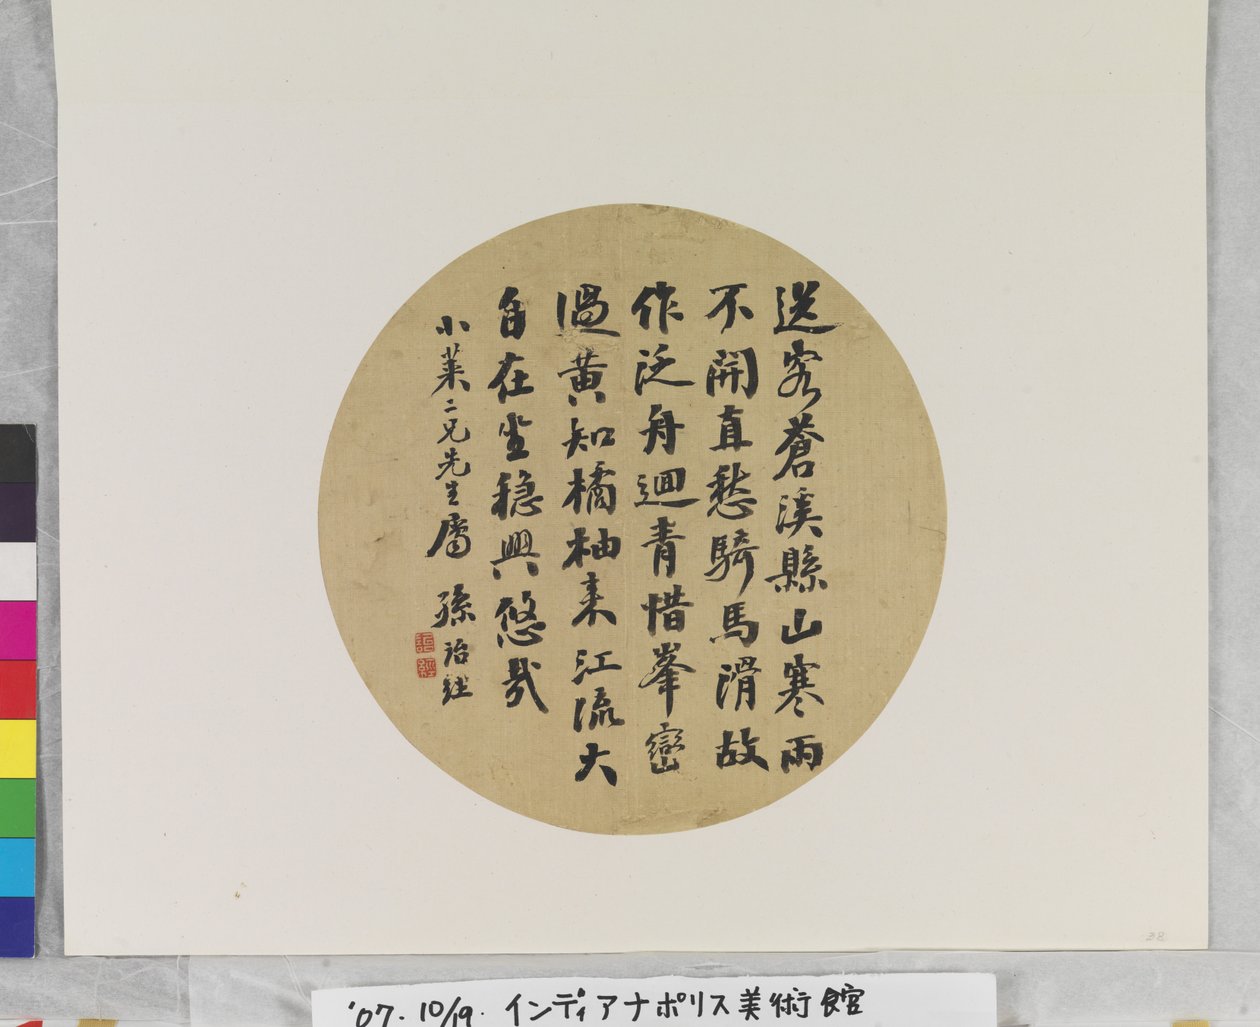 送客蒼溪縣山寒雨
不開直愁騎馬滑故
作泛舟迴青惜峯巒
過黃知橘柚來江流大
自在坐穩興悠哉
小萊二兄先生屬 孫詒經
詒
經
'07. 10/19. インディアナポリス美術館
38